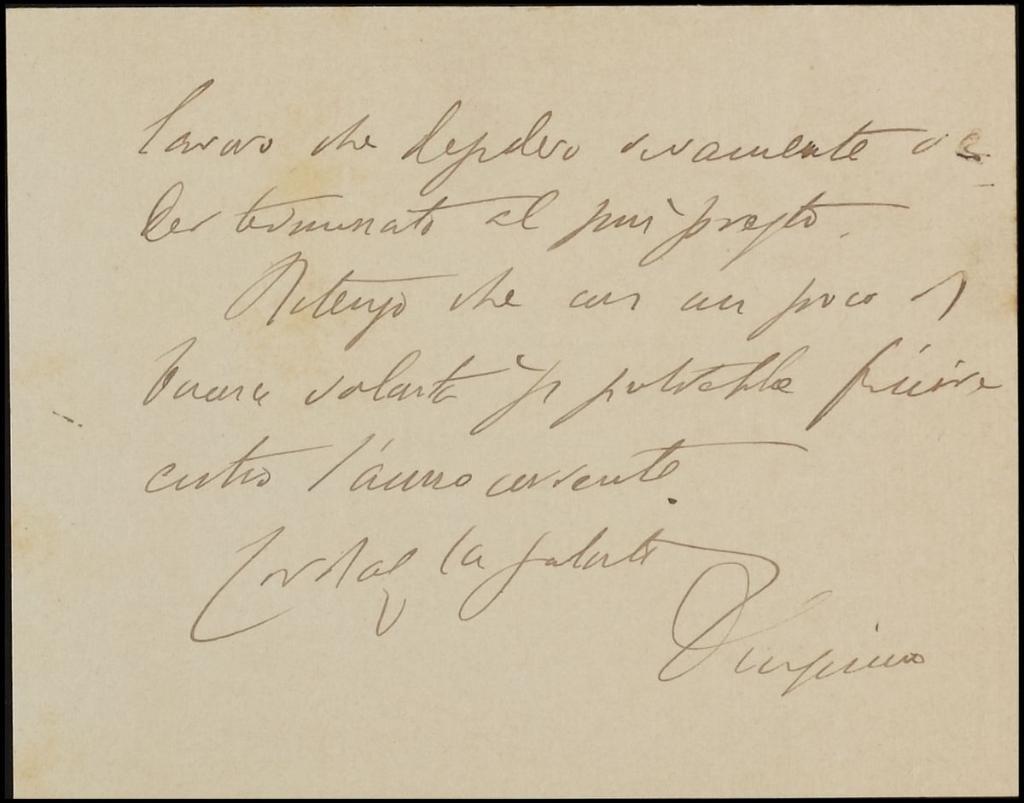 lavoro che desidero vivamente ve
der terminato al più presto.
Ritengo che con un poco di
buona volontà si potrebbe finire
entro l'anno corrente.
Cordial saluti